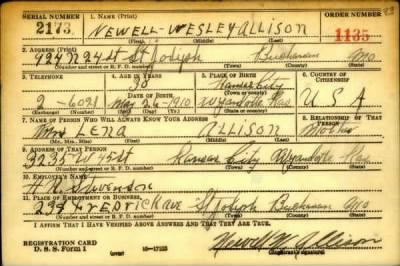 SERIAL NUMBER 1. NAME (Print) ORDER NUMBER
2173 NEWELL - WESLEY ALLISON 1135
(First) (Middle) (Last)
2. ADDRESS (Print)
924 N 24 St St. Joseph Buchanan Mo
(Number and street or R. F. D. number) (Town) (County) (State)
3. TELEPHONE 4. AGE IN YEARS 5. PLACE OF BIRTH 6. COUNTRY OF CITIZENSHIP
Kansas City
DATE OF BIRTH (Town or county)
2-6021 May 26-1910 Wyandotte Kas U S A
(Exchange) (Number) (Mo.) (Day) (Yr.) (State or country)
7. NAME OF PERSON WHO WILL ALWAYS KNOW YOUR ADDRESS 8. RELATIONSHIP OF THAT PERSON
Mrs LENA ALLISON Mother
(Mr., Mrs., Miss) (First) (Middle) (Last)
9. ADDRESS OF THAT PERSON
3235 W 45 St Kansas City Wyandotte Kas
(Number and street or R. F. D. number) (Town) (County) (State)
10. EMPLOYER'S NAME
Stevenson
11. PLACE OF EMPLOYMENT OR BUSINESS
Fredrick ave St Joseph Buchanan Mo
(Number and street or R. F. D. number) (Town) (County) (State)
I AFFIRM THAT I HAVE VERIFIED ABOVE ANSWERS AND THAT THEY ARE TRUE.
REGISTRATION CARD
D. S. S. Form 1 (over) 16-17105 Newell W. Allison
(Registrant's signature)